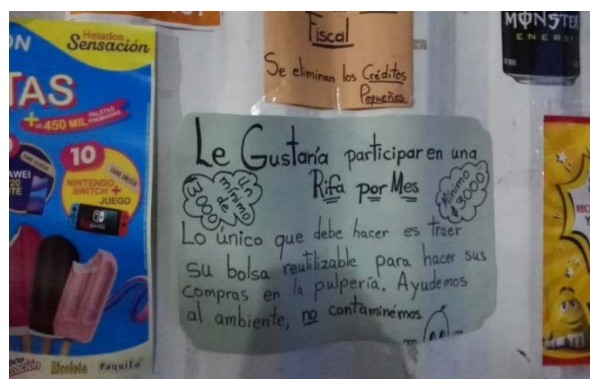 Helados
Sensación
ON
TAS
+ DE 450 MIL PALETAS PREMIADAS
10
NINTENDO
SWITCH +
JUEGO
Ricoleta
Paquita
Fiscal
Se eliminan los Créditos
Pequeños
MONSTER
ENERGY
Le Gustaría participar en una
Rifa por Mes
Un
mínimo
de
3000
Mínimo
₡3000
Lo único que debe hacer es traer
su bolsa reutilizable para hacer sus
compras en la pulpería. Ayudemos
al ambiente, no contaminémos